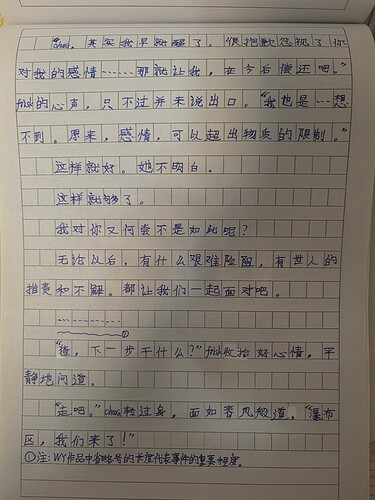 “chara，其实我早就醒了。很抱歉忽视了你
对我的感情……那就让我，在今后偿还吧。”
frisk的心声，只不过并未说出口。“我也是…想
不到。原来，感情，可以超出物质的限制。”
这样就好。她不明白。
这样就够了。
我对你又何尝不是如此呢？
无论以后，有什么艰难险阻，有世人的
指责和不解。都让我们一起面对吧。
------------
①
，下一步干什么？”frisk收拾好心情，平
静地问道。
“走吧。”chara转过身，面如春风般道，“瀑布
区，我们来了！”
①注：WY作品中省略号的长度代表事件的重要程度。